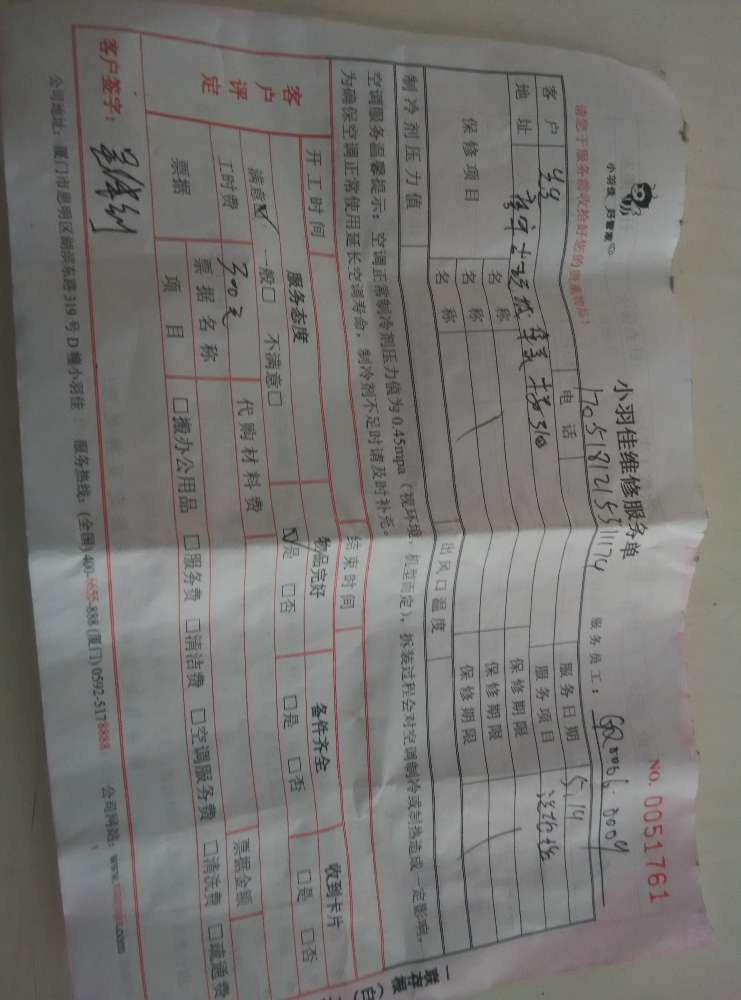 小羽佳 好管家
小羽佳维修服务单
NO. 0051761
请您于服务前收拾好您的贵重物品！
服务员工：
客户
电话
服务日期 5.14
地址
服务项目
保修项目
名称
保修期限
名称
保修期限
名称
保修期限
制冷剂压力值
出风口温度
空调服务温馨提示：空调正常制冷剂压力值为0.45mpa（视环境，机型而定），拆装过程会对空调制冷或制热造成一定影响，
为确保空调正常使用延长空调寿命，制冷剂不足时请及时补充。
开工时间
结束时间
客户评定
服务态度
物品完好
备件齐全
收到卡片
满意☑ 一般□ 不满意□
☑是 □否
□是 □否
□是 □否
工时费 300元
代购材料费
票据
票据名称
票据金额
项目
□搬办公用品 □服务费 □清洁费 □空调服务费 □清洗费 □疏通费
客户签字：
公司地址：厦门市思明区湖滨东路319号D幢小羽佳 服务热线：(全国)400-1655-888 (厦门)0592-5178888 公司网站：www.
一联存根（白）